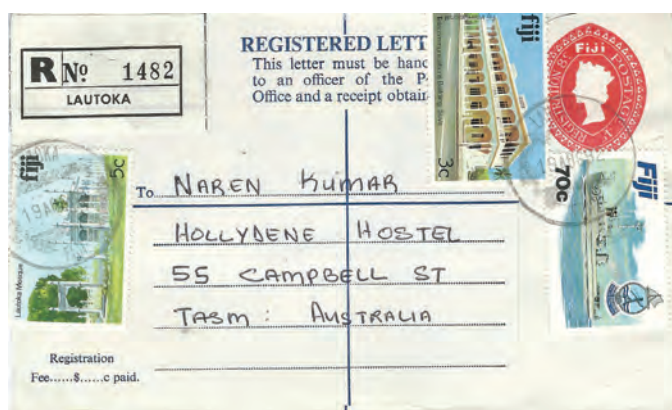 R No 1482
LAUTOKA
REGISTERED LETT
This letter must be hand
to an officer of the P
Office and a receipt obtain
fiji
3c
FIJI
REGISTRATION 8c POSTAGE 4c
fiji
5c
Lautoka Mosque
Fiji
70c
To NAREN KUMAR
HOLLYDENE HOSTEL
55 CAMPBELL ST
TASM: AUSTRALIA
Registration
Fee......$......c paid.